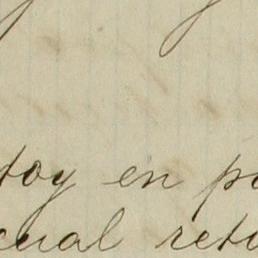 toy en po
cual reto